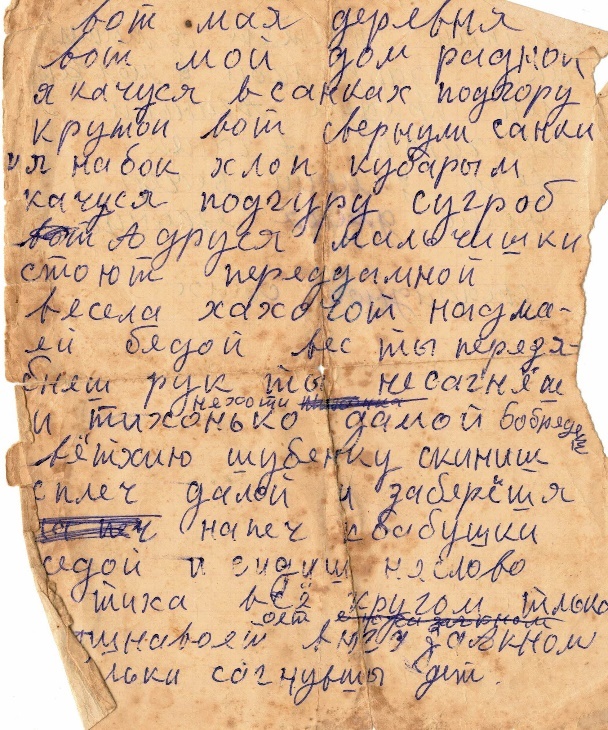 вот мая деревня
вот мой дом радной
я качуся в санках подгору
крутои вот свернули санки
и я набок хлоп кубарым
качуся подгуру сугроб
А друзя малочишки
стоют переддамной
весела хахочот надма-
ей бядой вес ты перезя-
бнеш рук ты несагнёш
нехоти
и тихонько дамой бобредеш
вётхию шубенку скиниш
с плеч далой и заберёшя
напеч кбабушки
седой и сидиш няслово
тиха всё кругом тлька
оет вюга заAкном
сагнувшы дет.